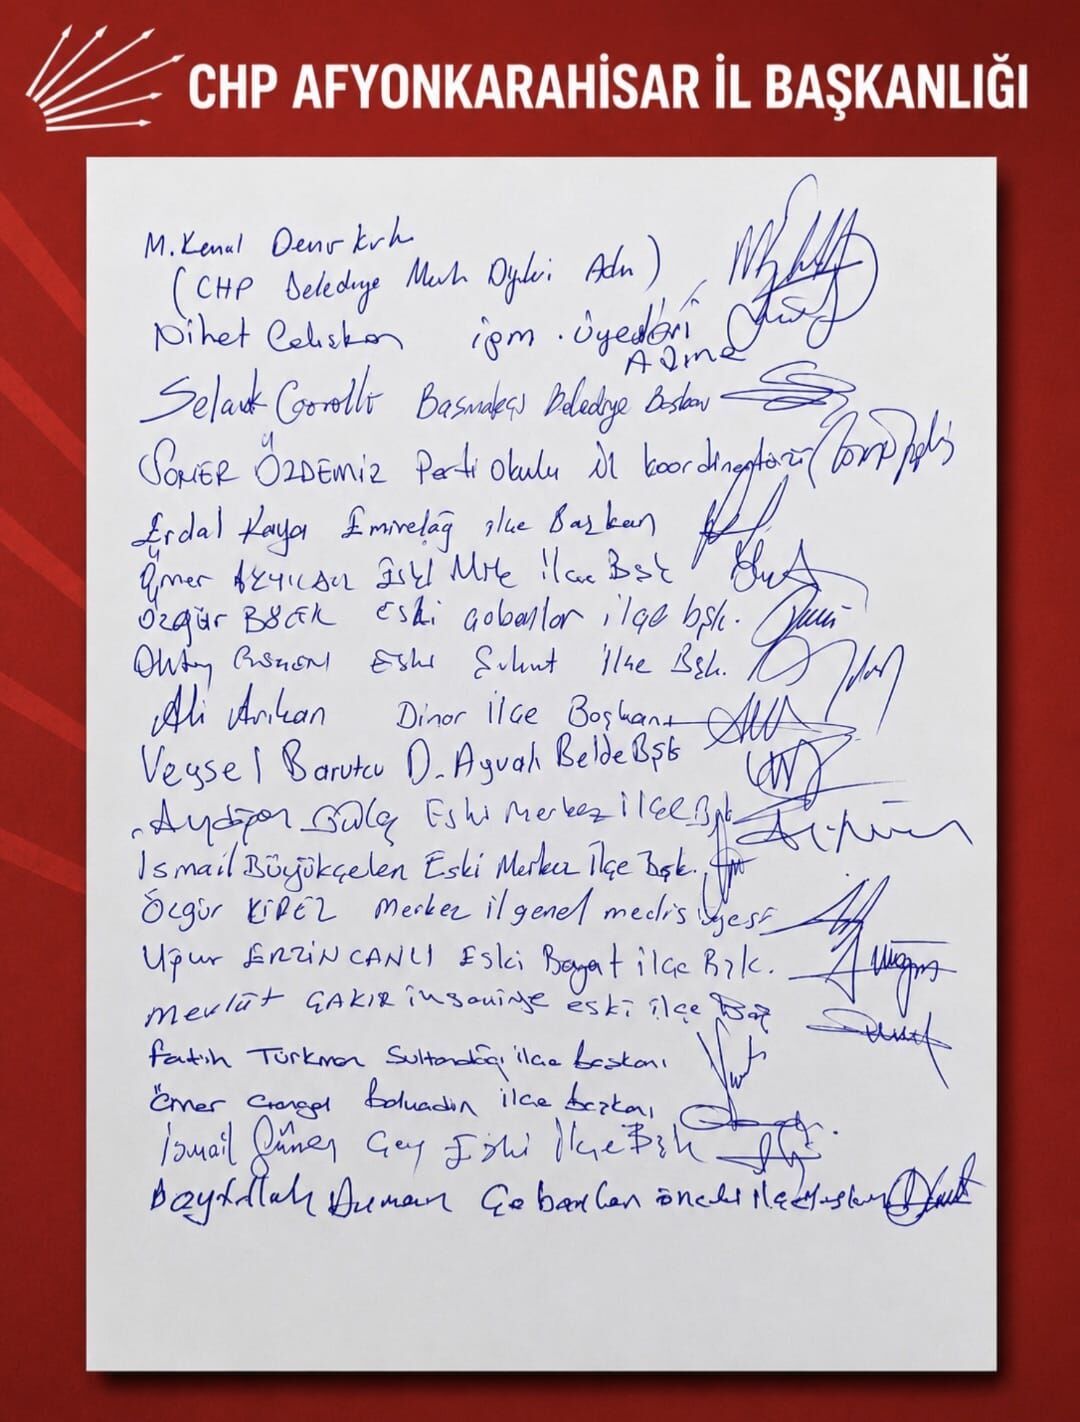 CHP AFYONKARAHİSAR İL BAŞKANLIĞI
M. Kemal Demirkırk
(CHP Belediye Mecl. Üyeleri Adn)
Nihet Çalışkan ipm. üyeleri
Adına
Selçuk Başmakçı Belediye Başkanı
SOMER ÖZDEMİZ Parti Okulu İl koordinatörü
Erdal Kaya Emirdağ ilçe Başkanı
Ömer Eski Mrk ilçe Bşk
Özgür Eski Çobanlar ilçe bşk.
Oktay Eski Şuhut İlçe Bşk.
Ali Arıkan Dinar İlçe Başkanı
Veysel Barutcu D. Ayvalı Belde Bşk
Aydoğan Eski Merkez ilçe Bşk
İsmail Büyükçelen Eski Merkez İlçe Bşk.
Özgür KİREZ Merkez il genel meclis üyesi
Uğur ERZİNCANLI Eski Bayat ilçe Bşk.
Mevlüt ÇAKIR İhsaniye eski ilçe Baş
Fatih Türkmen Sultandağı ilçe başkanı
Ömer Bolvadin ilçe başkanı
İsmail Güneş Çay Eski İlçe Bşk
Çobanlar önceki ilçe